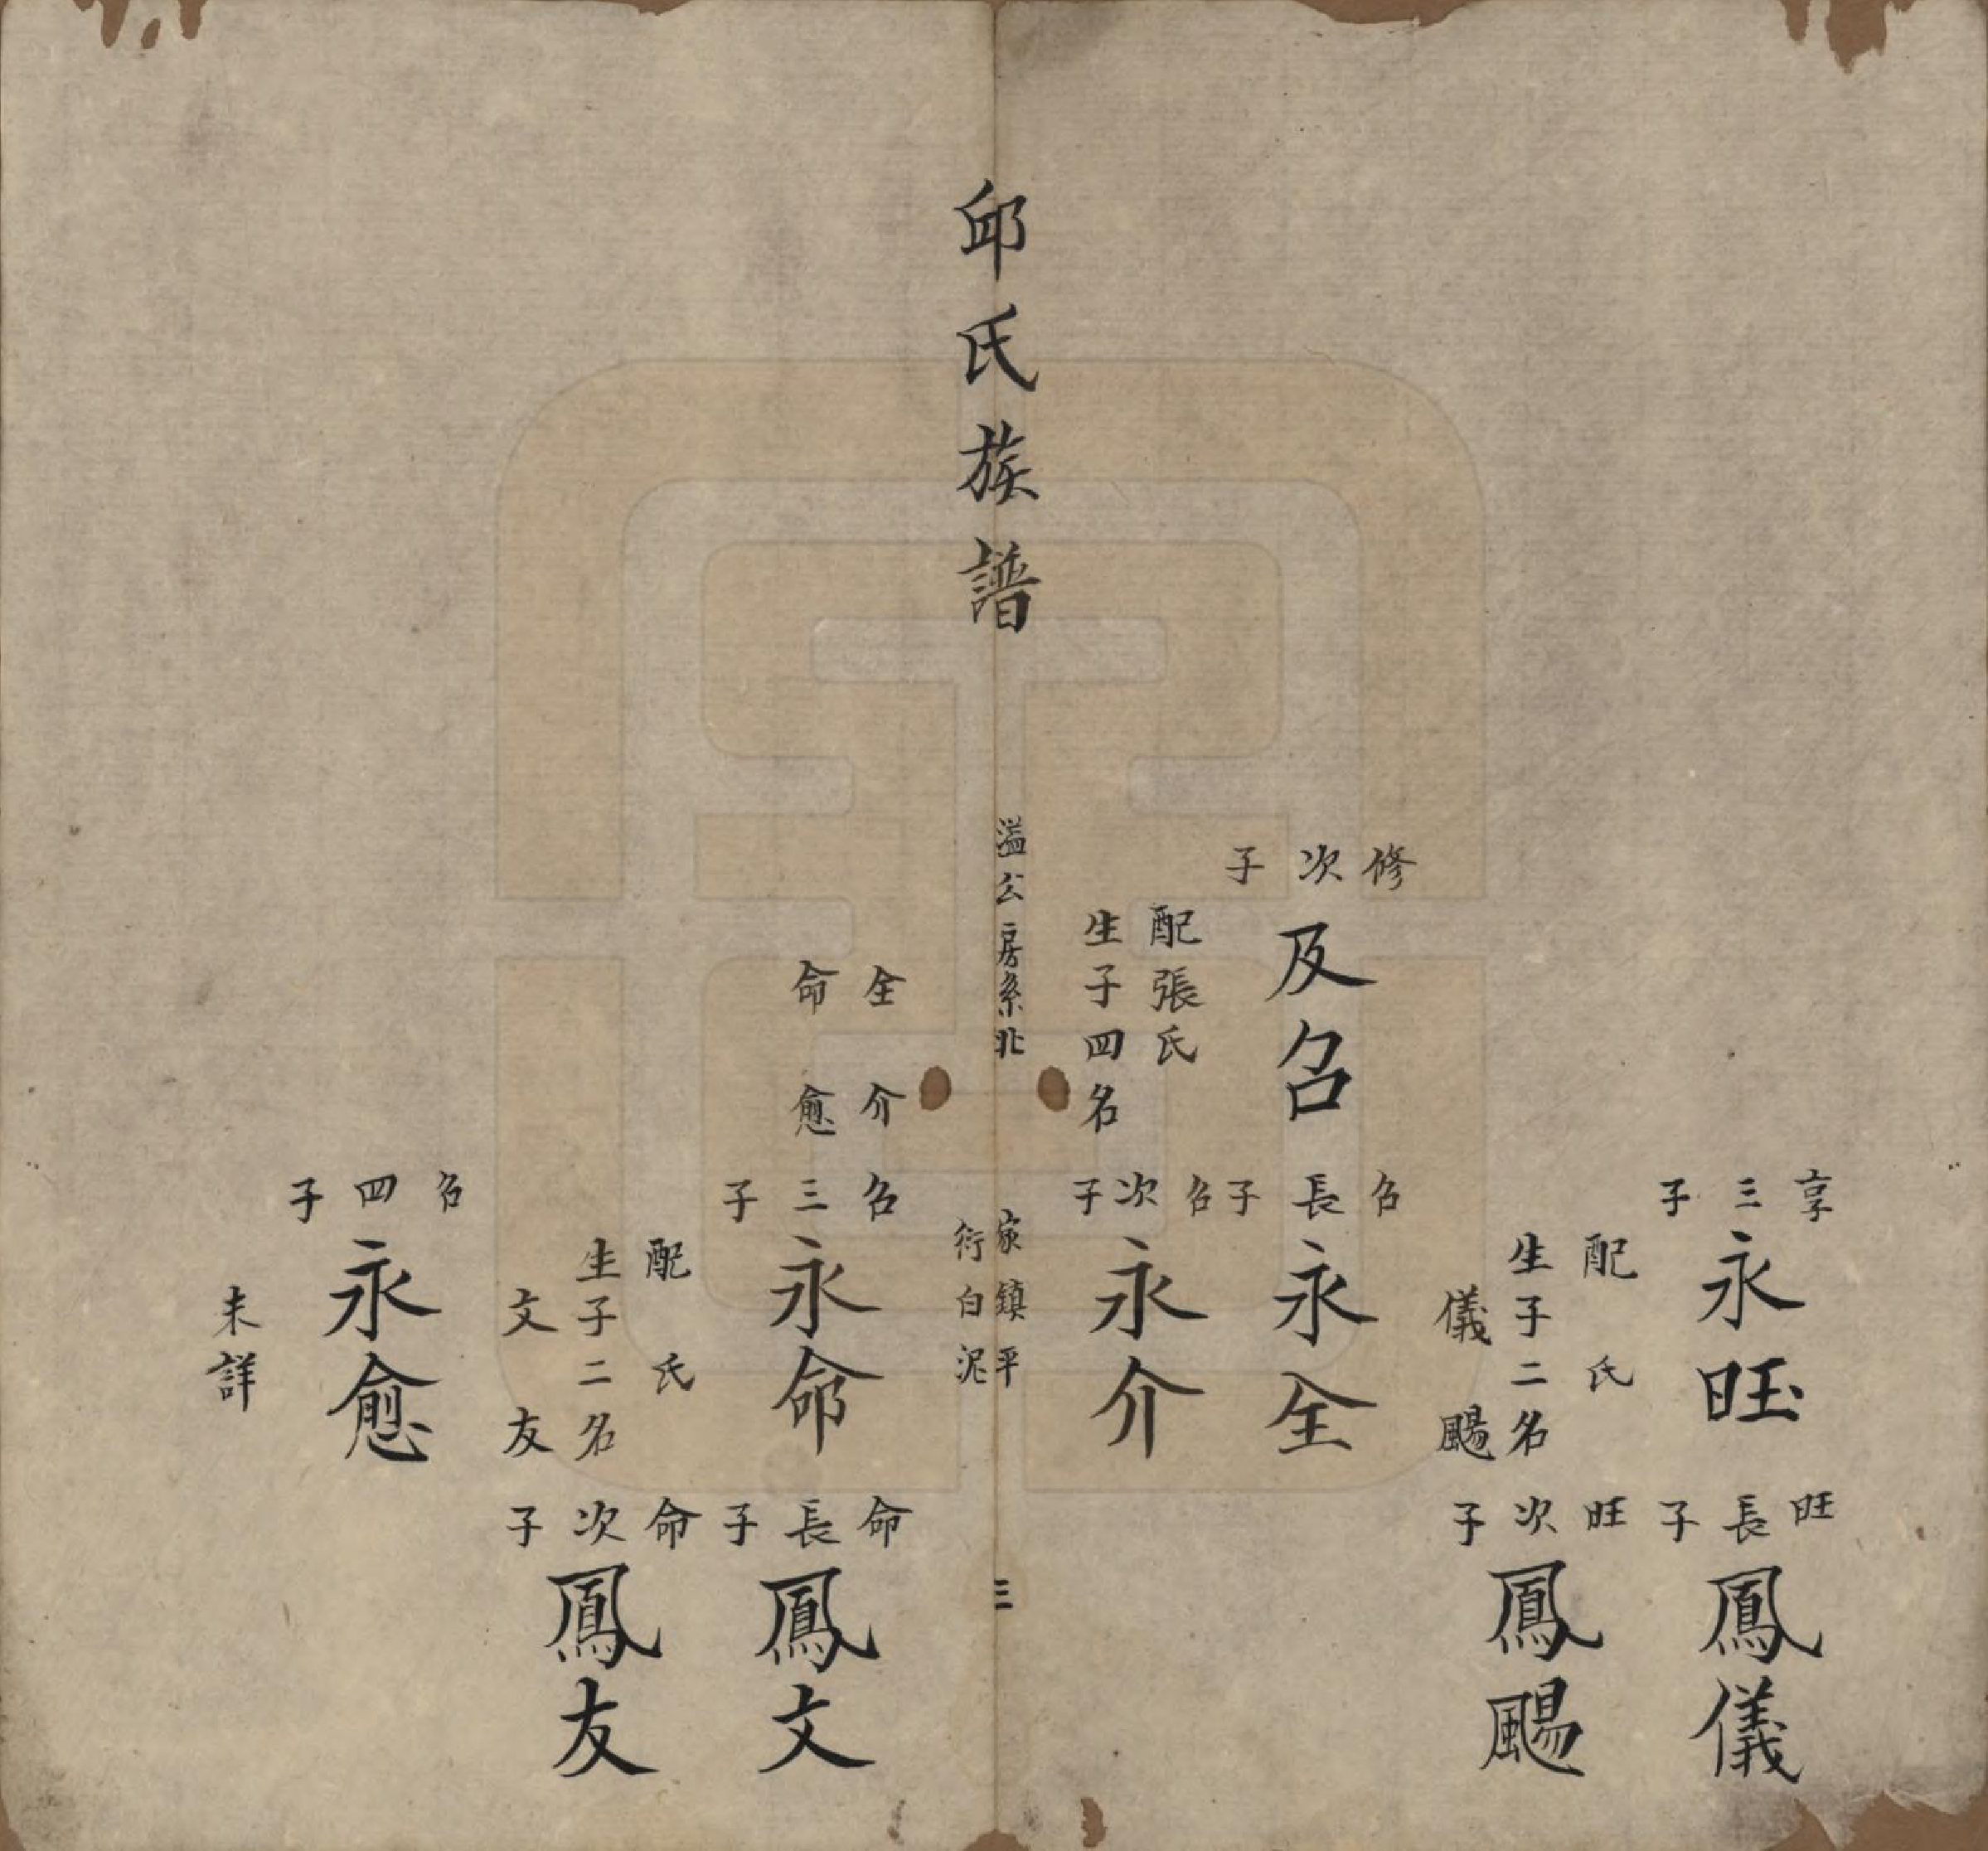 享三子
永旺
配　氏
生子二名
儀　颺
旺長子
鳳儀
旺次子
鳳颺
修次子
及召
配張氏
生子四名
全　介
命　愈
召長子
永全
召次子
永介
邱氏族譜
溢公房系兆
家鎮平
衍白泥
三
召三子
永命
配　氏
生子二名
文　友
命長子
鳳文
命次子
鳳友
召四子
永愈
未詳